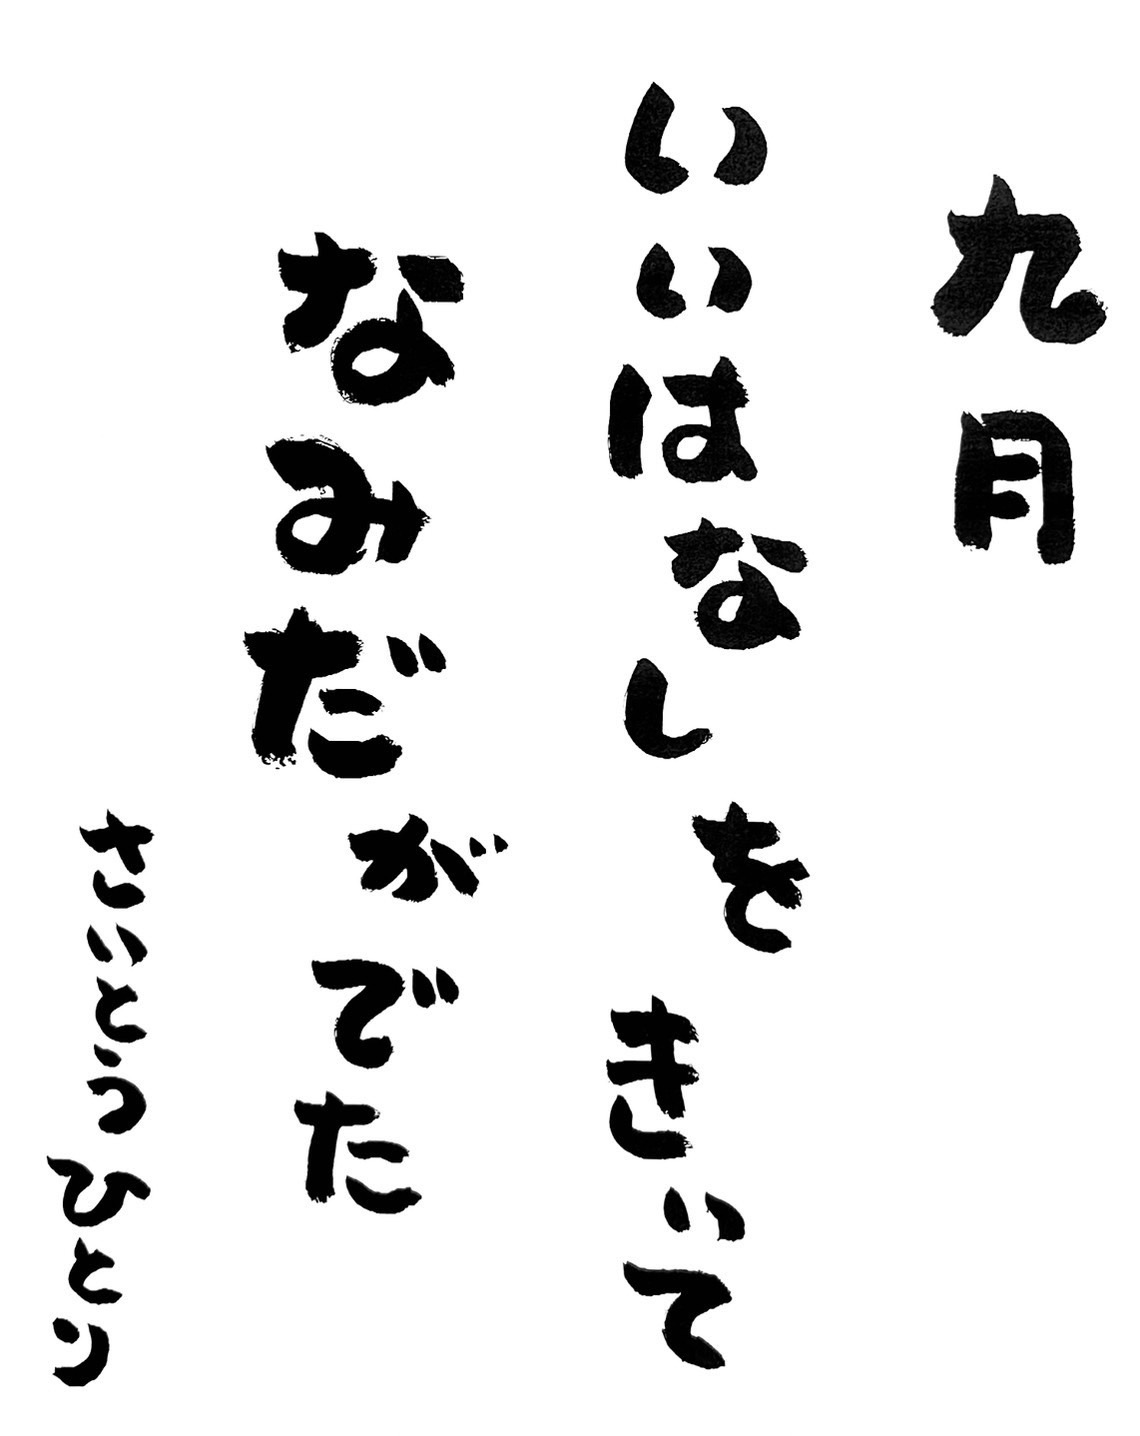 九月
いいはなしを きいて
なみだがでた
さいとうひとり